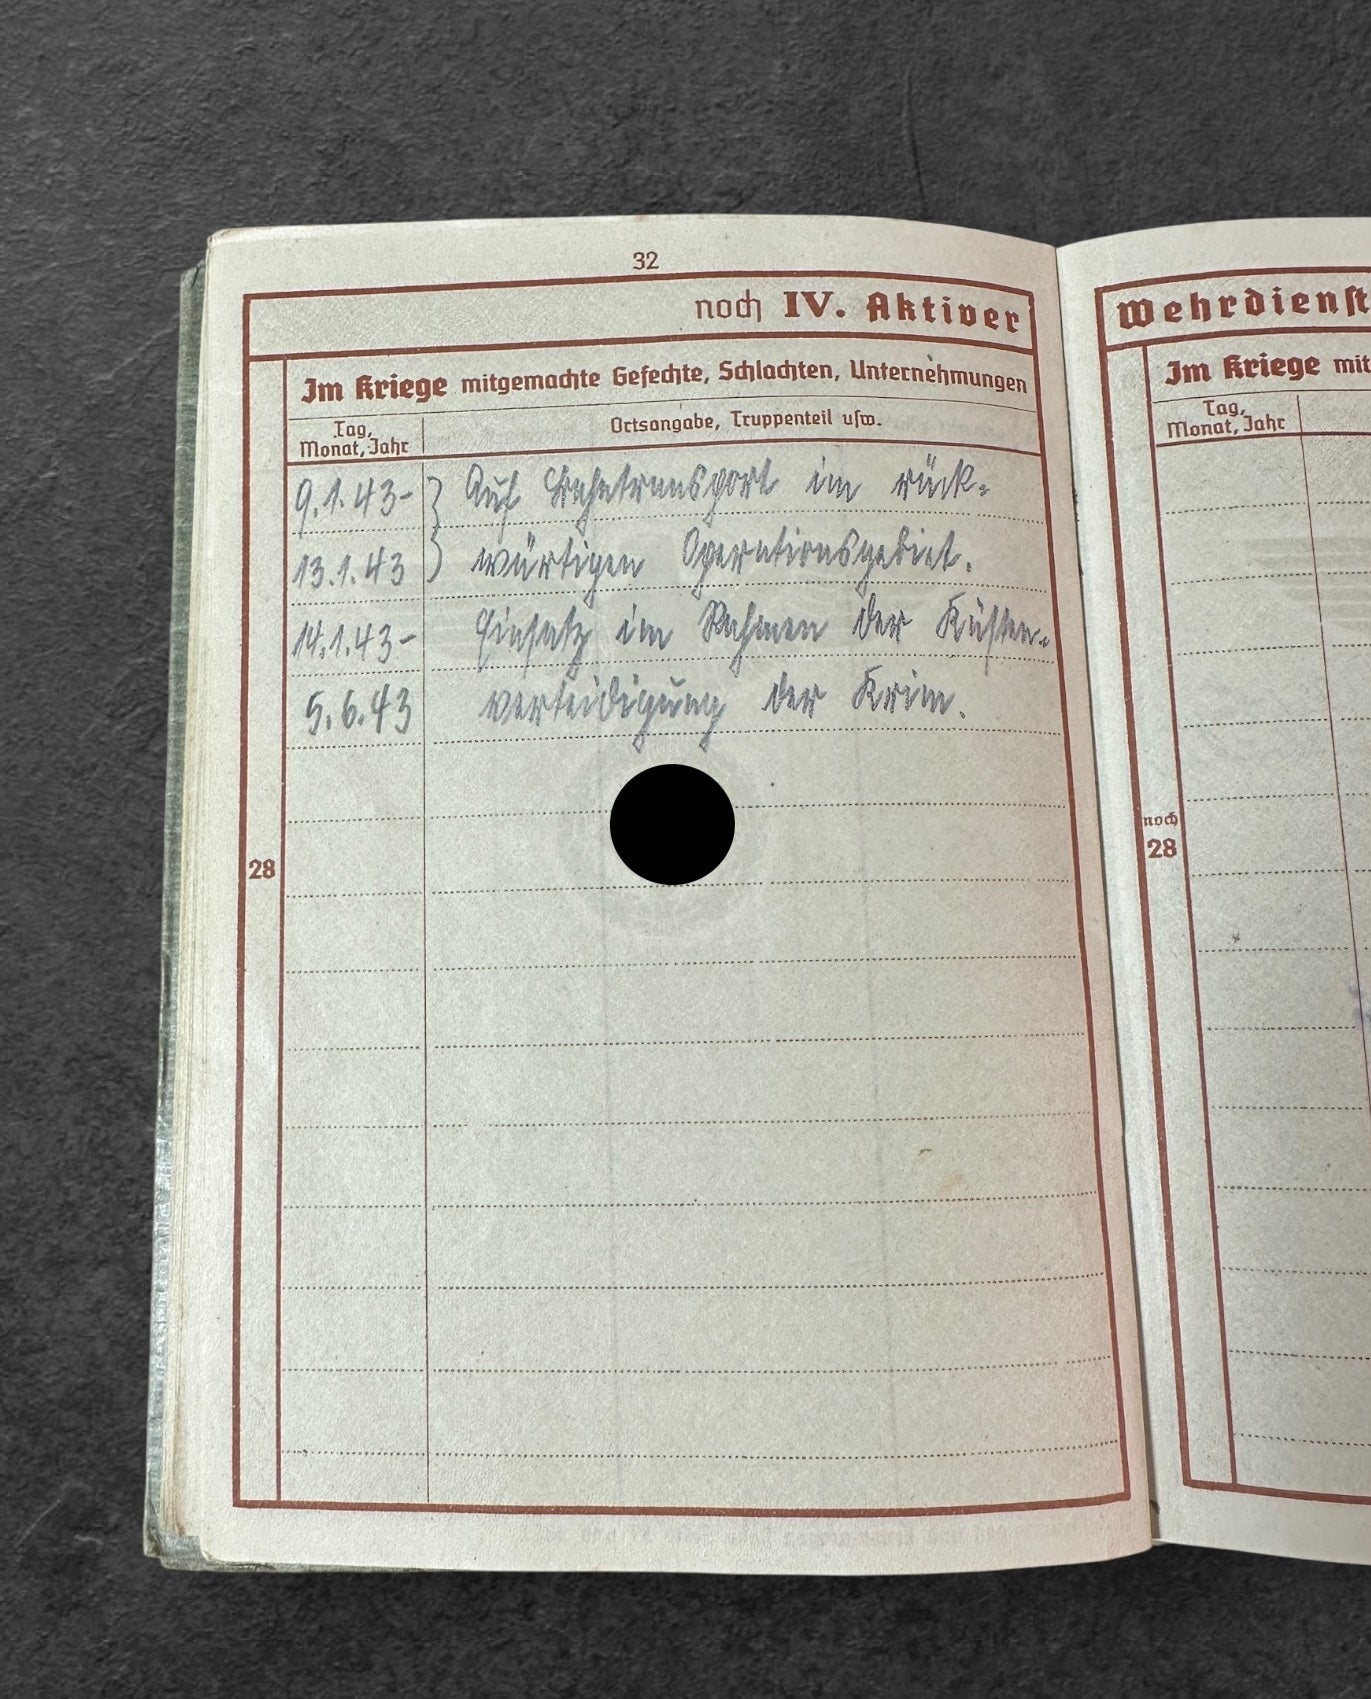 32
noch IV. Aktiver
Im Kriege mitgemachte Gefechte, Schlachten, Unternehmungen
Tag,
Monat, Jahr
Ortsangabe, Truppenteil usw.
9.1.43- } Auf Bahntransport im rück-
13.1.43 wärtigen Operationsgebiet.
14.1.43- Einsatz im Rahmen der Küsten-
5.6.43 verteidigung der Krim.
28
Wehrdienst
Im Kriege mit
Tag,
Monat, Jahr
noch
28